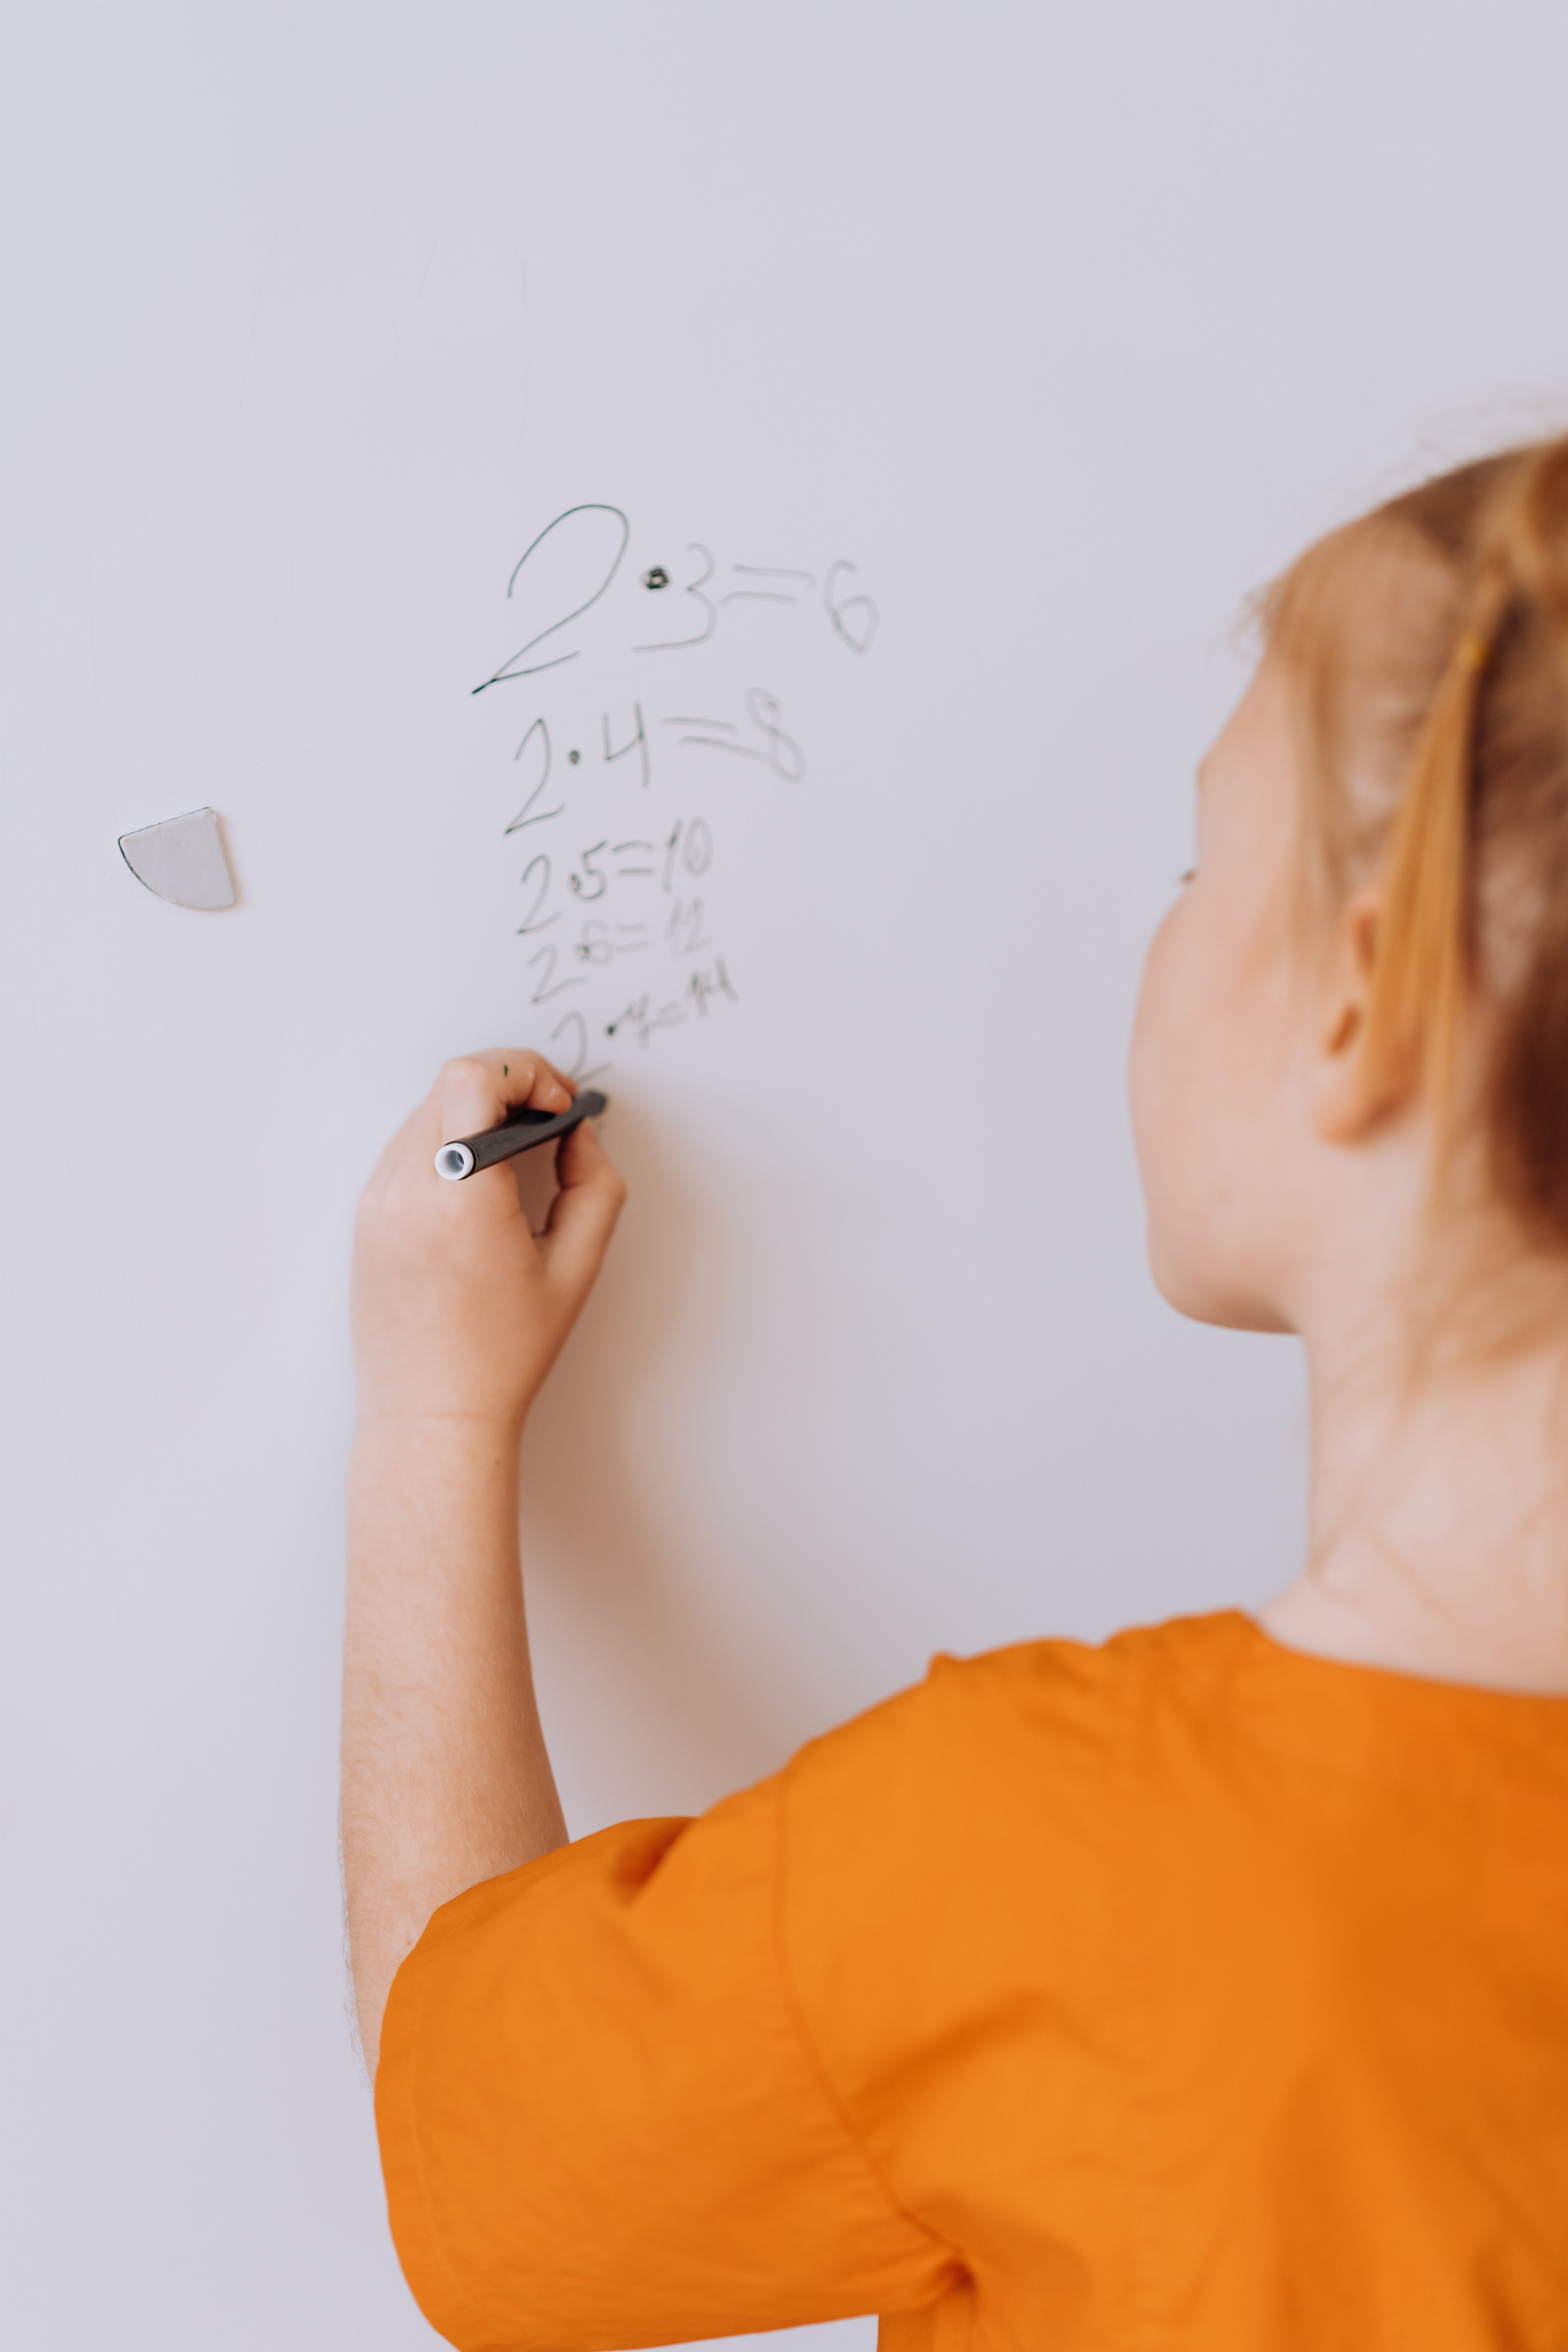 2·3=6
2·4=8
2·5=10
2·6=12
2·7=14